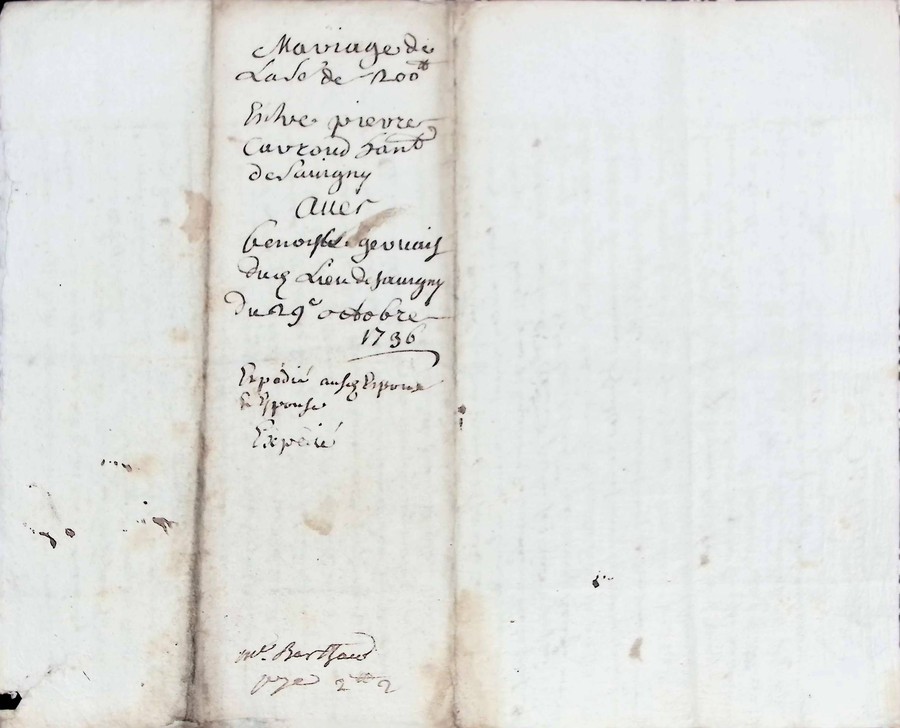 Mariage de
La So.e de 200tt
Entre pierre
Cavroud han.t
de Savigny
Avec
benoiste gervais
dud Lieu de savigny
Du 29e octobre
1736
Expédié ausd Epoux
& Epouse
Expédié
me. Barthaud
2tt 2